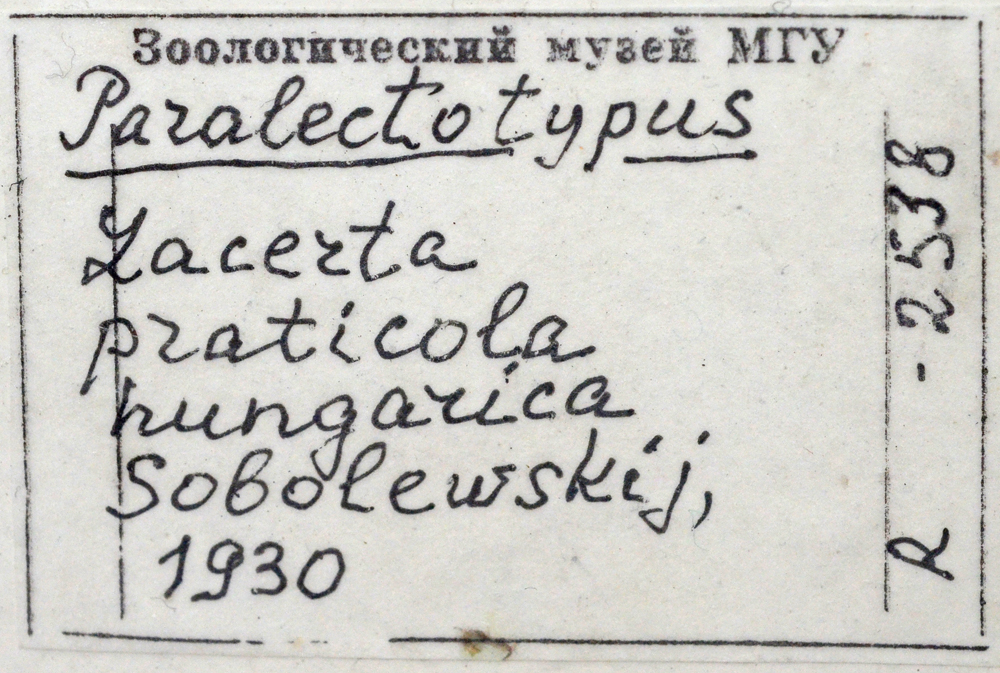 Зоологический музей МГУ
Paralectotypus
Lacerta
praticola
hungarica
Sobolewskij,
1930
R - 2538